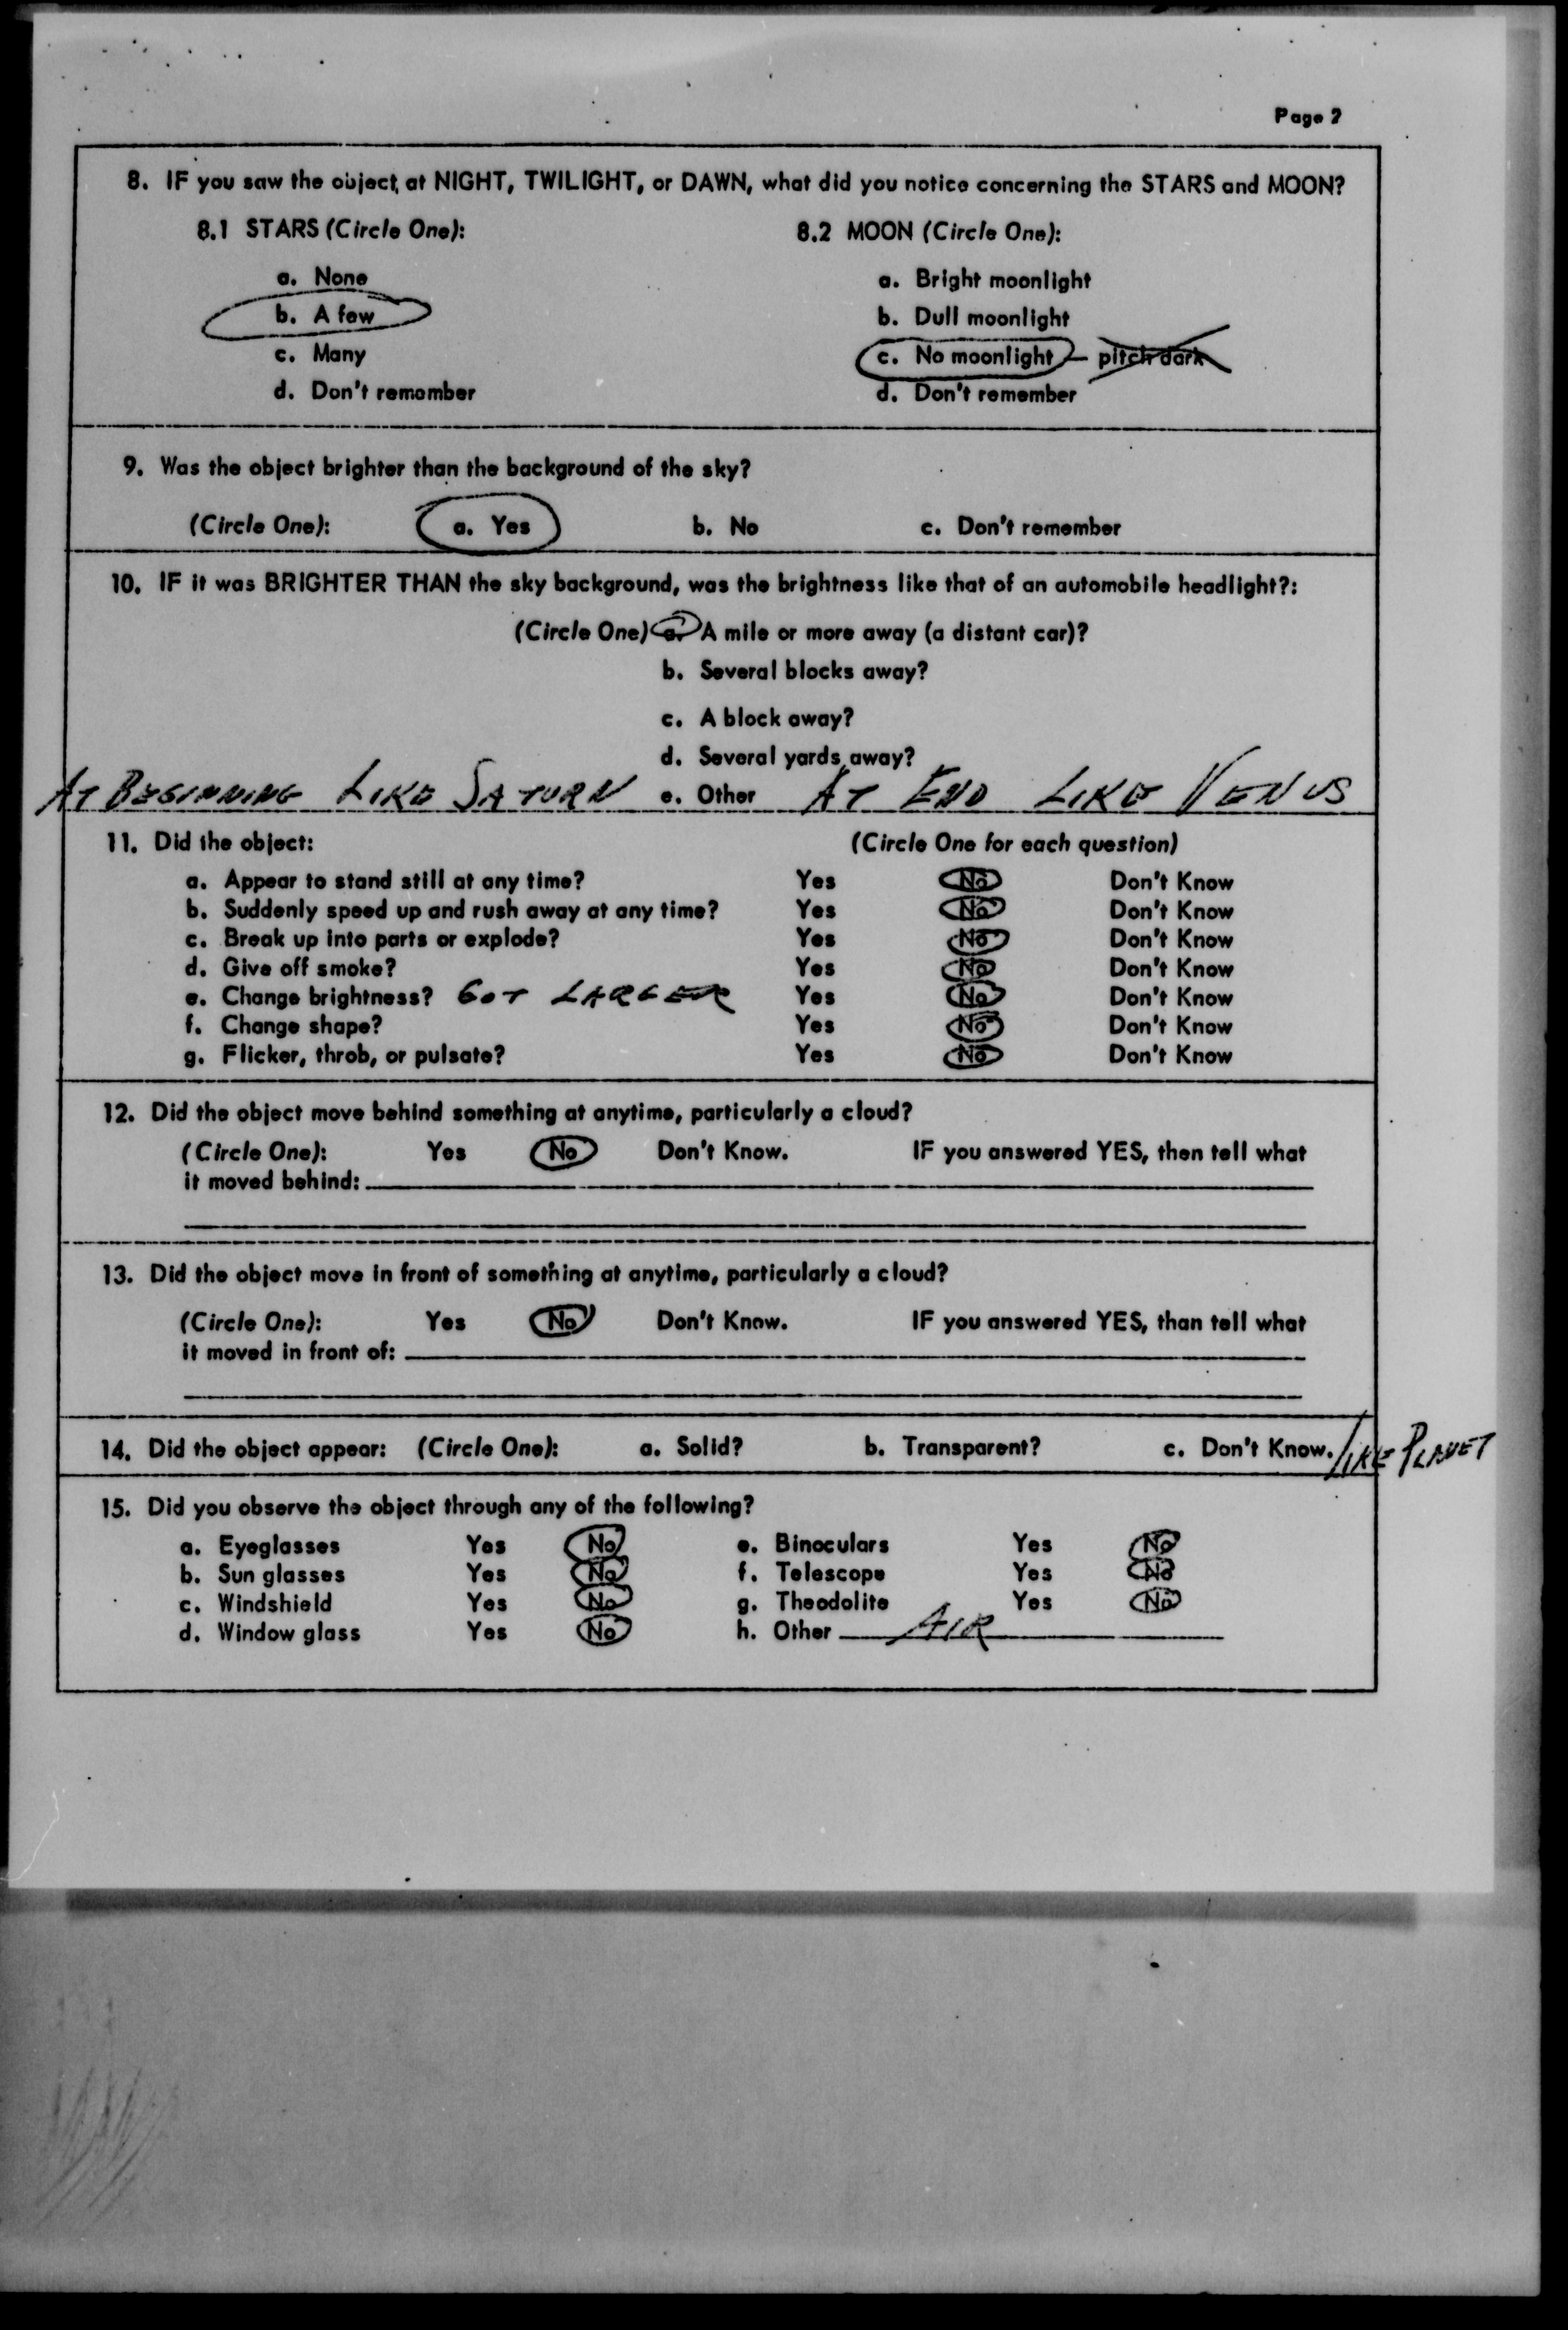 Page 2
8. IF you saw the object, at NIGHT, TWILIGHT, or DAWN, what did you notice concerning the STARS and MOON?
8.1 STARS (Circle One):
a. None
b. A few
c. Many
d. Don't remember
8.2 MOON (Circle One):
a. Bright moonlight
b. Dull moonlight
c. No moonlight — pitch dark
d. Don't remember
9. Was the object brighter than the background of the sky?
(Circle One): a. Yes b. No c. Don't remember
10. IF it was BRIGHTER THAN the sky background, was the brightness like that of an automobile headlight?:
(Circle One) a. A mile or more away (a distant car)?
b. Several blocks away?
c. A block away?
d. Several yards away?
AT BEGINNING LIKE SATURN e. Other AT END LIKE VENUS
11. Did the object: (Circle One for each question)
a. Appear to stand still at any time? Yes No Don't Know
b. Suddenly speed up and rush away at any time? Yes No Don't Know
c. Break up into parts or explode? Yes No Don't Know
d. Give off smoke? Yes No Don't Know
e. Change brightness? GOT LARGER Yes No Don't Know
f. Change shape? Yes No Don't Know
g. Flicker, throb, or pulsate? Yes No Don't Know
12. Did the object move behind something at anytime, particularly a cloud?
(Circle One): Yes No Don't Know. IF you answered YES, then tell what
it moved behind:
13. Did the object move in front of something at anytime, particularly a cloud?
(Circle One): Yes No Don't Know. IF you answered YES, than tell what
it moved in front of:
14. Did the object appear: (Circle One): a. Solid? b. Transparent? c. Don't Know. LIKE PLANET
15. Did you observe the object through any of the following?
a. Eyeglasses Yes No e. Binoculars Yes No
b. Sun glasses Yes No f. Telescope Yes No
c. Windshield Yes No g. Theodolite Yes No
d. Window glass Yes No h. Other AIR